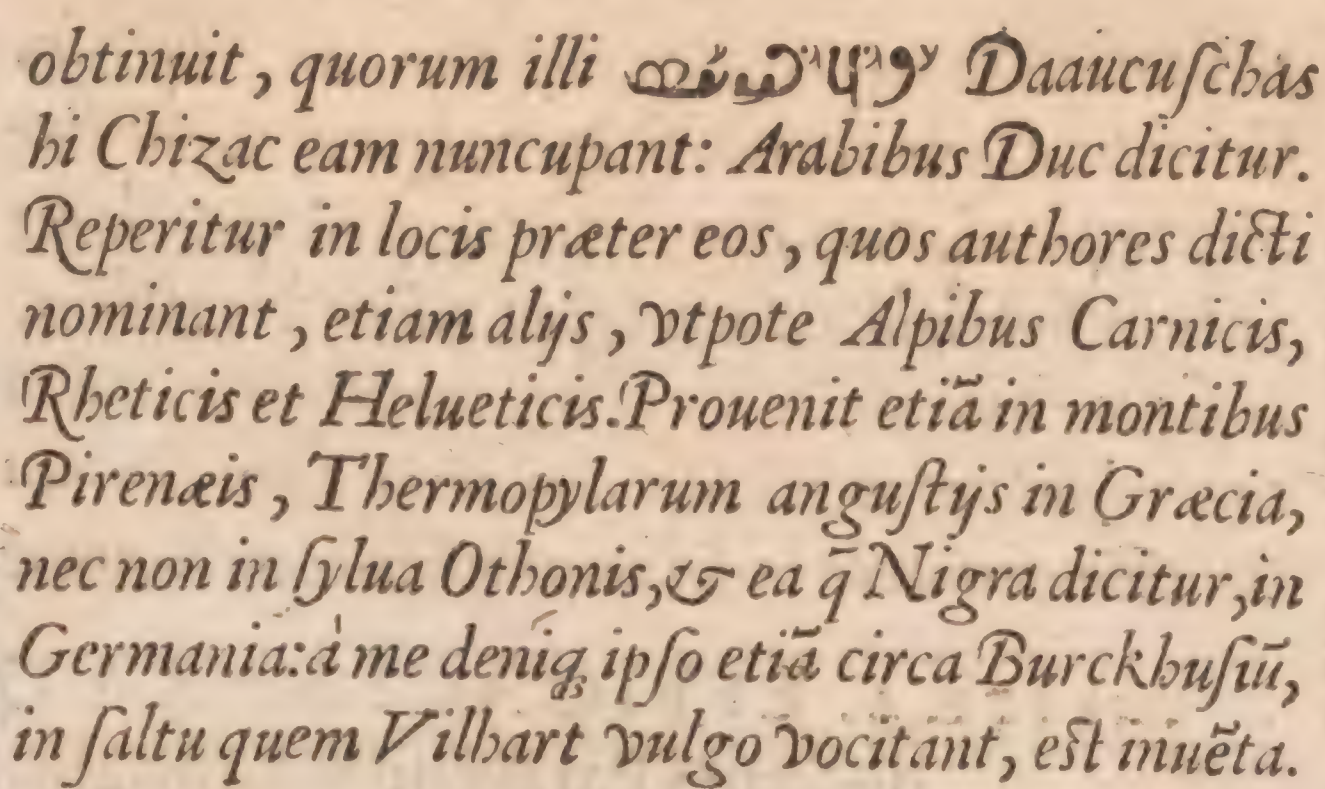 obtinuit, quorum illi Daaucuſchas
hi Chizac eam nuncupant: Arabibus Duc dicitur.
Reperitur in locis præter eos, quos authores dicti
nominant, etiam alijs, vtpote Alpibus Carnicis,
Rheticis et Helueticis. Prouenit etiā in montibus
Pirenæis, Thermopylarum anguſtijs in Græcia,
nec non in ſylua Othonis, & ea q̄ Nigra dicitur, in
Germania: à me deniq; ipſo etiā circa Burckhuſiū,
in ſaltu quem Vilhart vulgo vocitant, eſt inuēta.